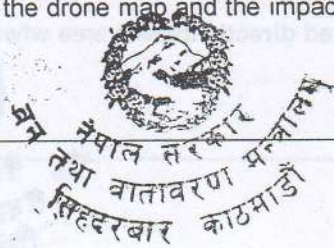 the drone map and the impac
नेपाल सरकार
वन तथा वातावरण मन्त्रालय
सिंहदरबार काठमाडौं